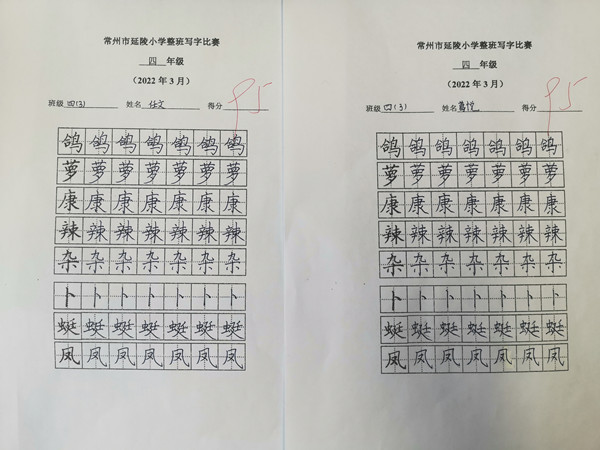 常州市延陵小学整班写字比赛
四 年级
（2022 年 3 月）
班级 四(3) 姓名 仕文 得分 95
鸽 鸽 鸽 鸽 鸽 鸽 鸽
萝 萝 萝 萝 萝 萝 萝
康 康 康 康 康 康 康
辣 辣 辣 辣 辣 辣 辣
杂 杂 杂 杂 杂 杂 杂
卜 卜 卜 卜 卜 卜 卜
蜓 蜓 蜓 蜓 蜓 蜓 蜓
凤 凤 凤 凤 凤 凤 凤
常州市延陵小学整班写字比赛
四 年级
（2022 年 3 月）
班级 四(3) 姓名 得分 95
鸽 鸽 鸽 鸽 鸽 鸽 鸽
萝 萝 萝 萝 萝 萝 萝
康 康 康 康 康 康 康
辣 辣 辣 辣 辣 辣 辣
杂 杂 杂 杂 杂 杂 杂
卜 卜 卜 卜 卜 卜 卜
蜓 蜓 蜓 蜓 蜓 蜓 蜓
凤 凤 凤 凤 凤 凤 凤